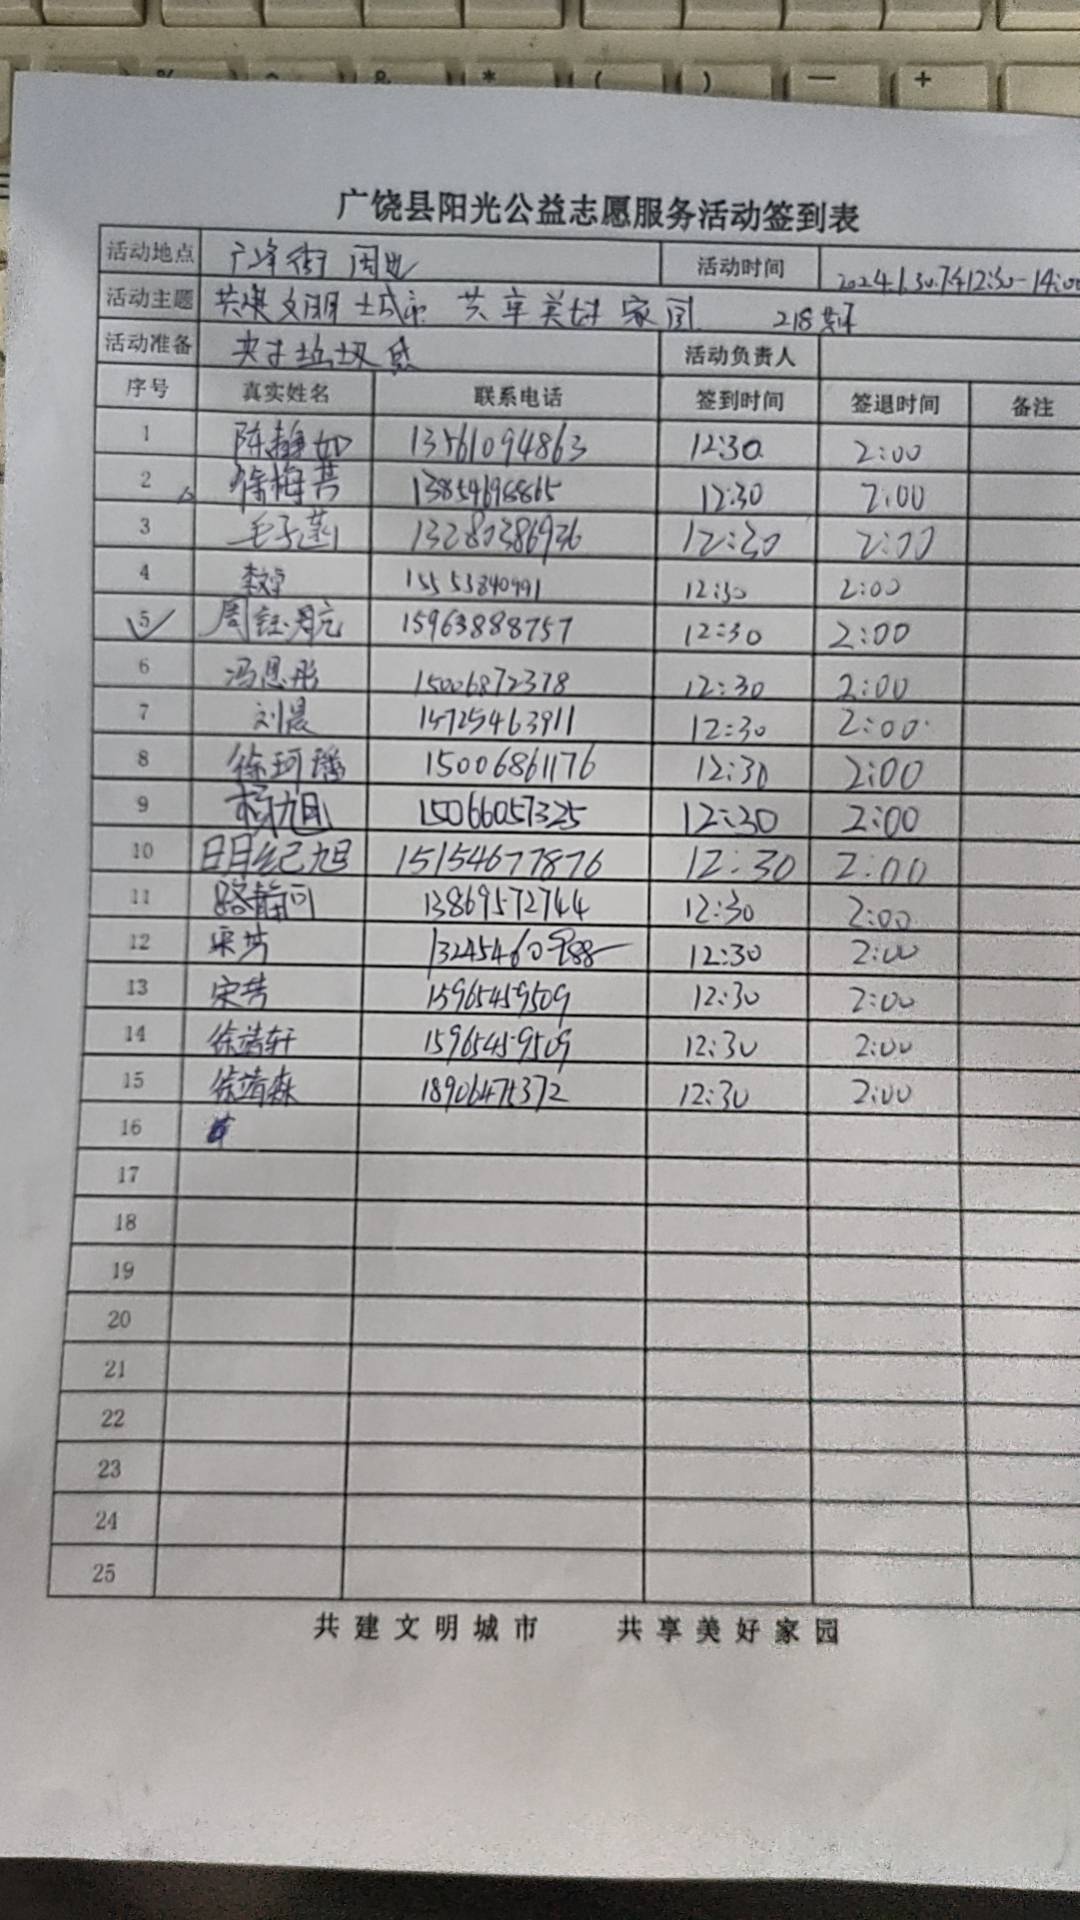 广饶县阳光公益志愿服务活动签到表
活动地点 广峰街 周边 活动时间 2024.1.30.下午12:30-14:00
活动主题 共建文明城市 共享美好家园 218期
活动准备 夹子垃圾袋 活动负责人
序号 真实姓名 联系电话 签到时间 签退时间 备注
1 陈静如 13561094863 12:30 2:00
2 徐梅芳 12:30 2:00
3 毛子菡 13280386936 12:30 2:00
4 15553840991 12:30 2:00
5 周钰君亮 15963888757 12:30 2:00
6 冯思彤 15006872378 12:30 2:00
7 刘晨 14725463911 12:30 2:00
8 徐珂璠 15006861176 12:30 2:00
9 杨旭 15066057325 12:30 2:00
10 明纪旭 15154677876 12:30 2:00
11 路静问 13869572744 12:30 2:00
12 12:30 2:00
13 宋芳 15965459509 12:30 2:00
14 徐靖轩 15965459509 12:30 2:00
15 徐靖森 12:30 2:00
16
17
18
19
20
21
22
23
24
25
共建文明城市 共享美好家园